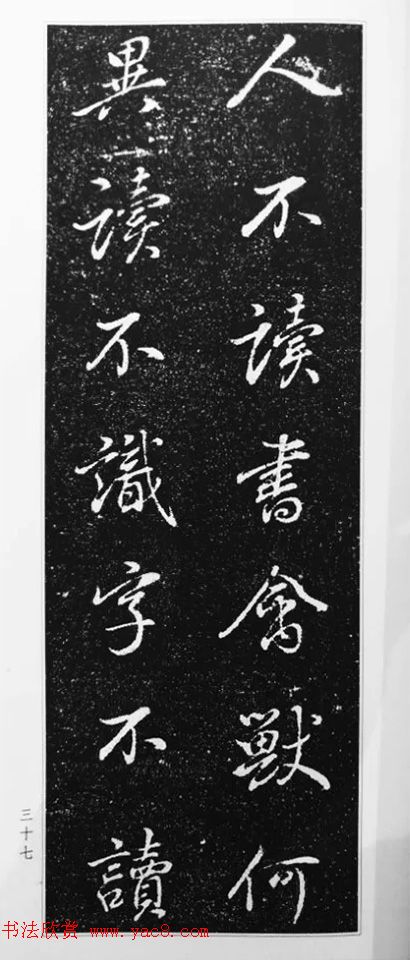 人不讀書禽獸何
異讀不識字不讀
三十七
书法欣赏 www.yac8.com